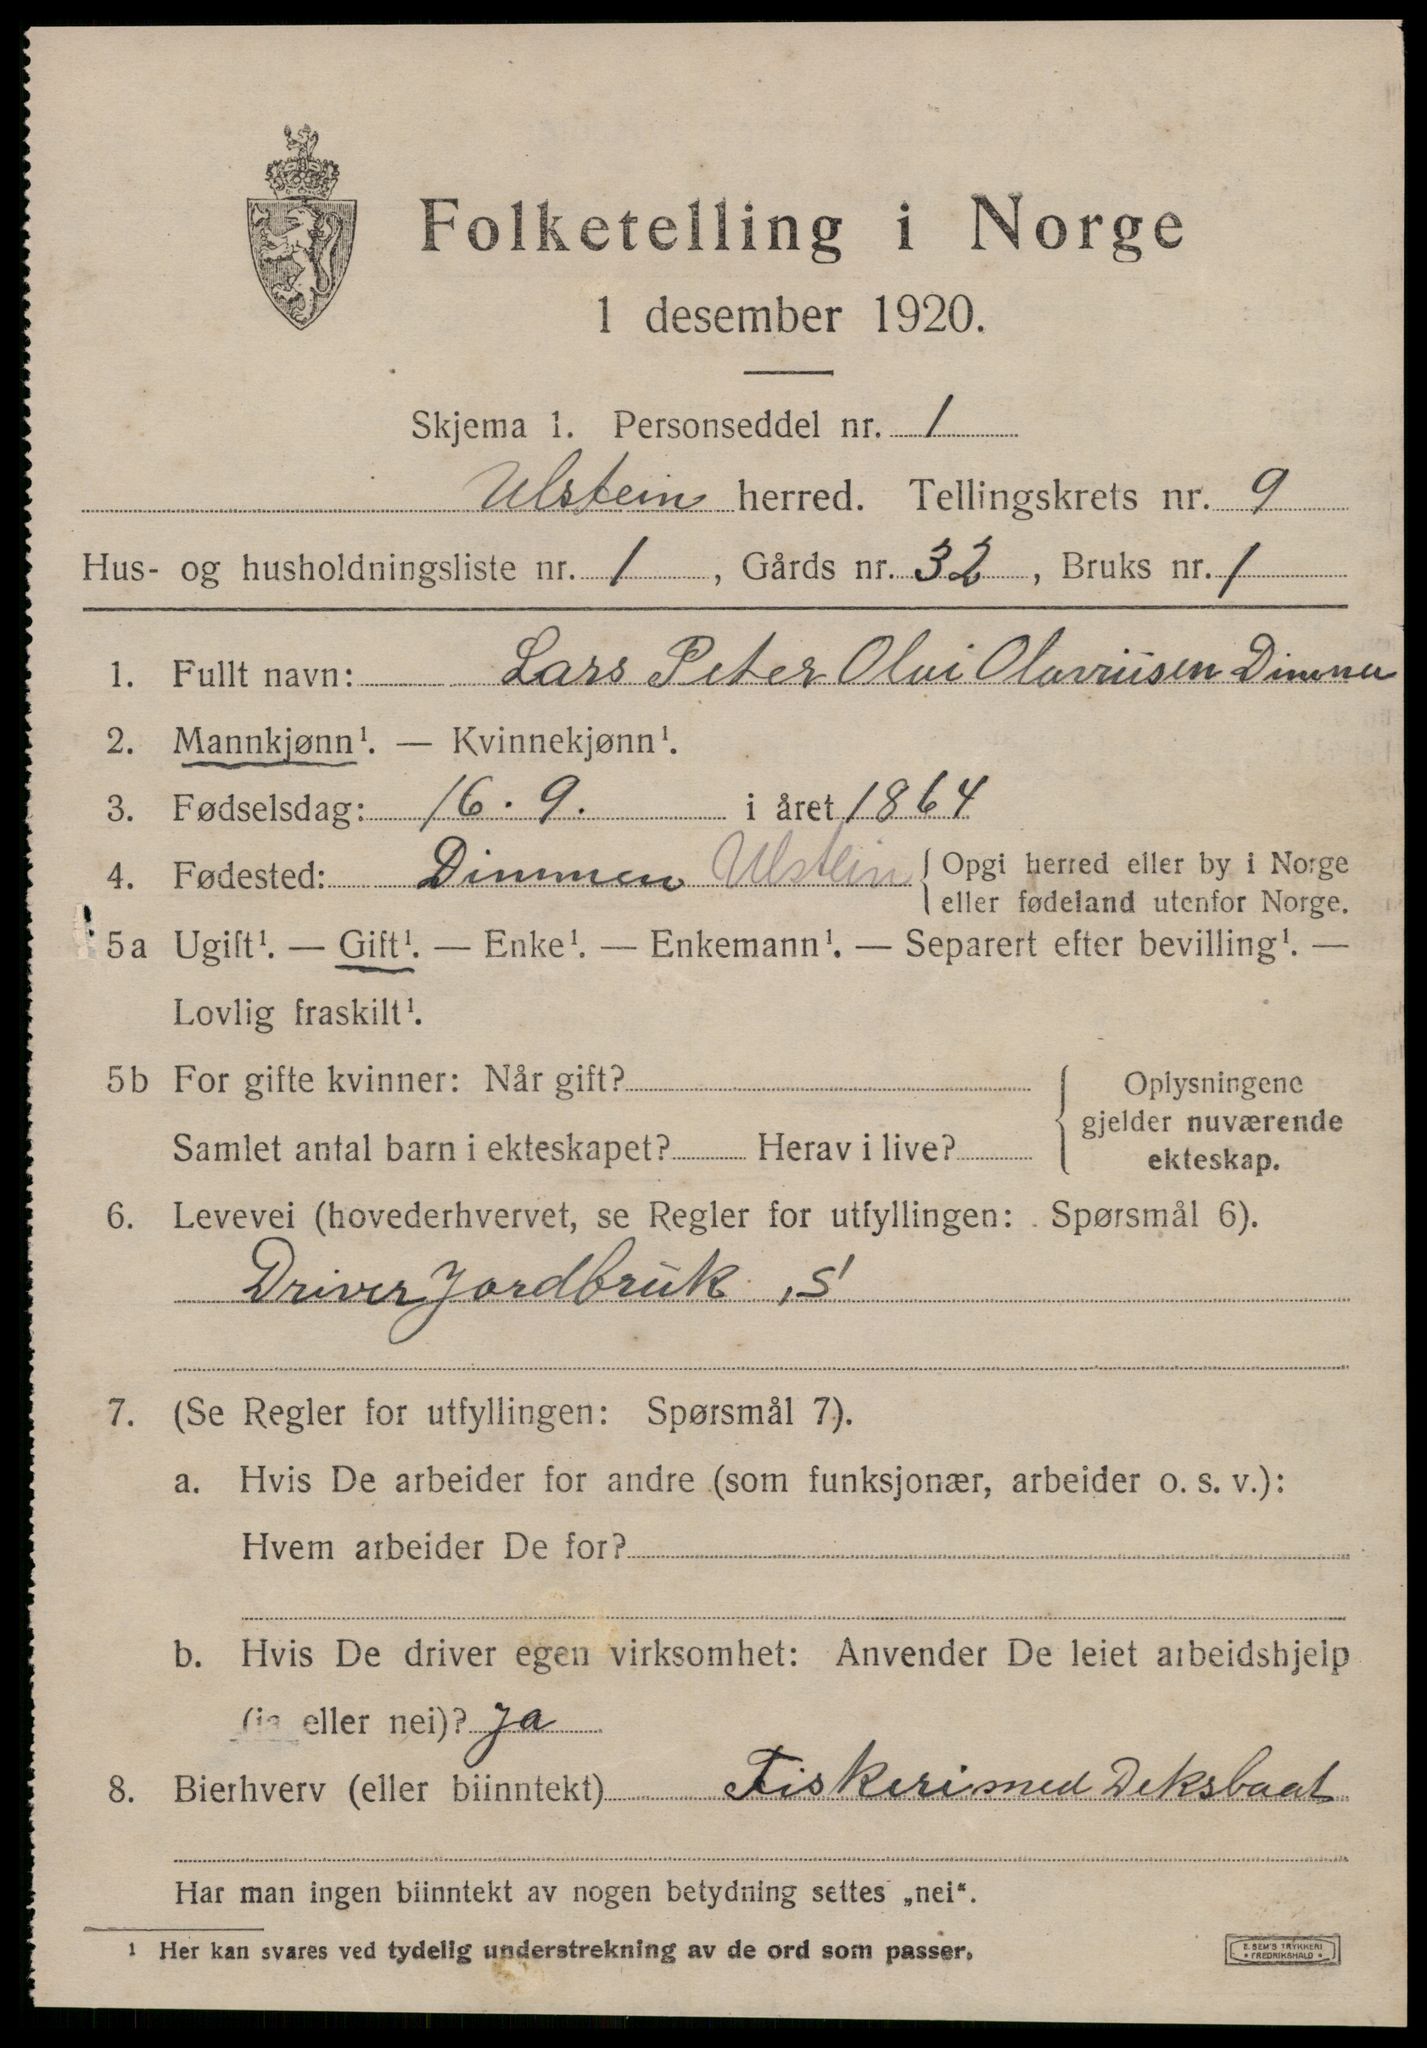 Folketelling i Norge
1 desember 1920.
Skjema 1. Personseddel nr. 1
Ulstein herred. Tellingskrets nr. 9
Hus- og husholdningsliste nr. 1, Gårds nr. 32, Bruks nr. 1
1. Fullt navn: Lars Peter Olai Olavriisen Dimmen
2. Mannkjønn¹. — Kvinnekjønn¹.
3. Fødselsdag: 16. 9. i året 1864
4. Fødested: Dimmen Ulstein { Opgi herred eller by i Norge
eller fødeland utenfor Norge.
5a Ugift¹. — Gift¹. — Enke¹. — Enkemann¹. — Separert efter bevilling¹. —
Lovlig fraskilt¹.
5b For gifte kvinner: Når gift?
Samlet antal barn i ekteskapet? Herav i live?
{ Oplysningene
gjelder nuværende
ekteskap.
6. Levevei (hovederhvervet, se Regler for utfyllingen: Spørsmål 6).
Driver Jordbruk, S
7. (Se Regler for utfyllingen: Spørsmål 7).
a. Hvis De arbeider for andre (som funksjonær, arbeider o. s. v.):
Hvem arbeider De for?
b. Hvis De driver egen virksomhet: Anvender De leiet arbeidshjelp
(ja eller nei)? Ja
8. Bierhverv (eller biinntekt) Fiskeri med Deksbaat
Har man ingen biinntekt av nogen betydning settes „nei“.
1 Her kan svares ved tydelig understrekning av de ord som passer.
E. SEM'S TRYKKERI
* FREDRIKSHALD *